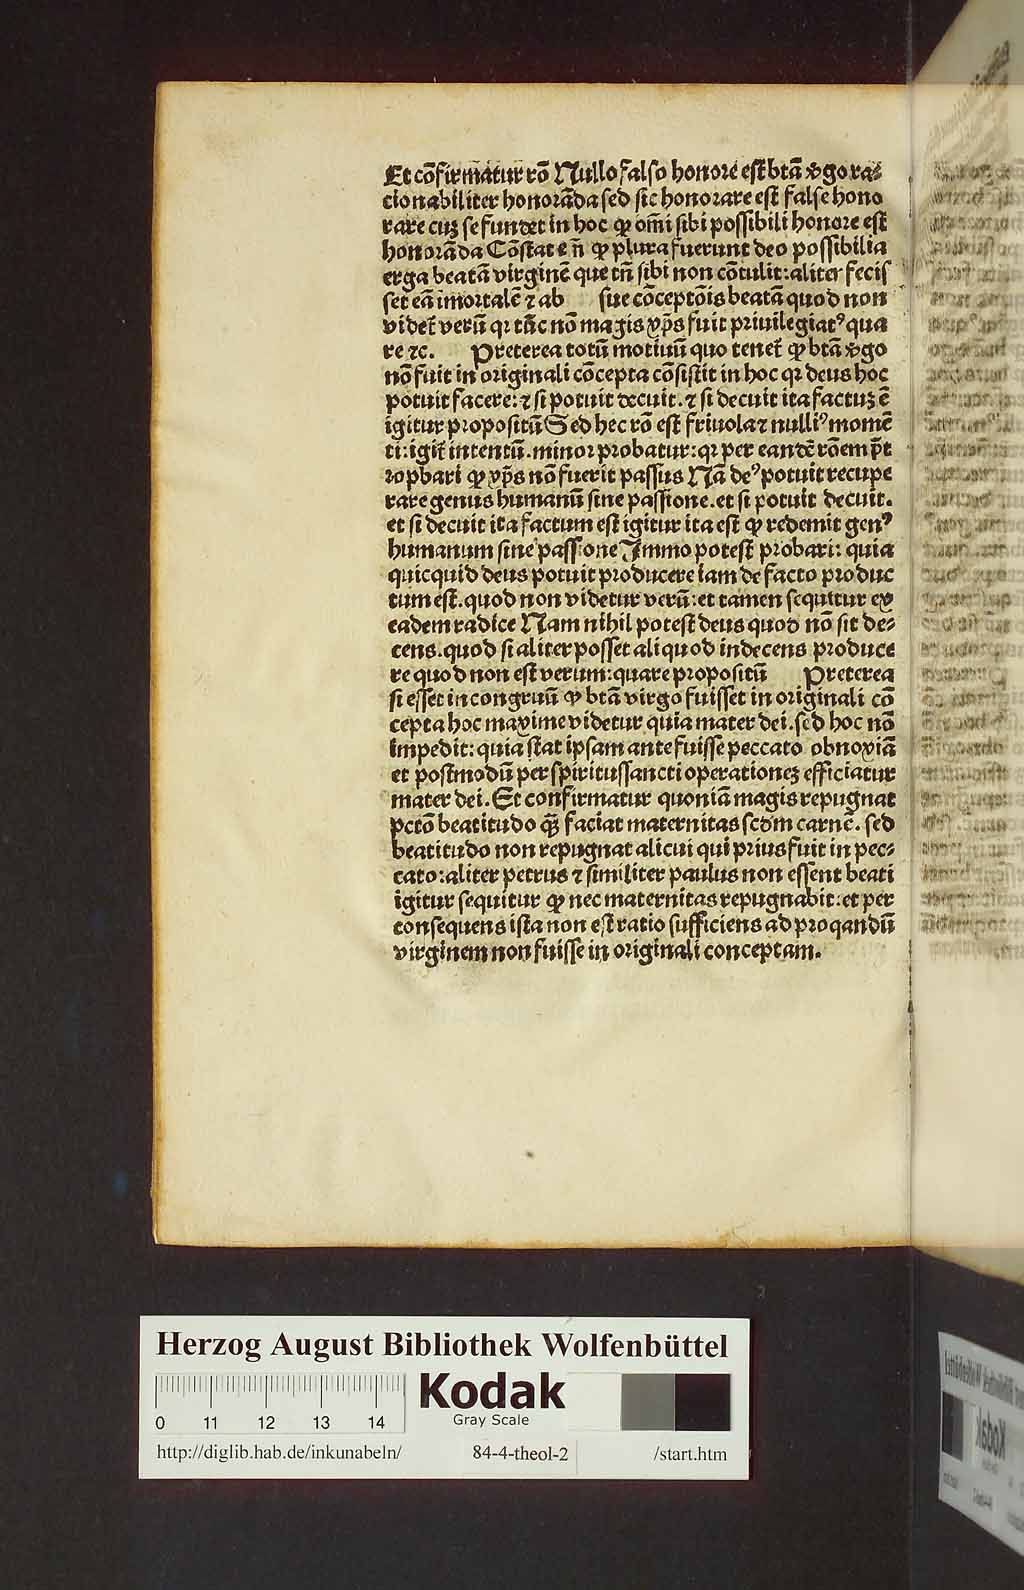 Et cōfirmatur rō Nullo falso honore est btā v̄go ra⸗
cionabiliter honorāda sed sic honorare est false hono
rare cuȝ se fundet in hoc ꝙ om̄i sibi possibili honore est
honorāda Cōstat em̄ ꝙ plura fuerunt deo possibilia
erga beatā virginē que tn̄ sibi non cōtulit: aliter fecis
set eā imortalē ⁊ ab sue cōceptōis beatā quod non
videt̄ verū qr tūc nō magis xp̄s fuit priuilegiatꝰ qua
re ⁊c. Preterea totū motiuū quo tenet̄ ꝙ btā v̄go
nō fuit in originali cōcepta cōsistit in hoc qr deus hoc
potuit facere: ⁊ si potuit decuit. ⁊ si decuit ita factuȝ ē
igitur propositū Sed hec rō est friuola ⁊ nulliꝰ momē
ti: igit̄ intentū. minor probatur: qr per eandē rōem p̄t
ꝓbari ꝙ xp̄s nō fuerit passus Nā deꝰ potuit recupe
rare genus humanū sine passione. et si potuit decuit.
et si decuit ita factum est igitur ita est ꝙ redemit genꝰ
humanum sine passione Immo potest probari: quia
quicquid deus potuit producere iam de facto produc
tum est. quod non videtur verū: et tamen sequitur ex
eadem radice Nam nihil potest deus quod nō sit de⸗
cens. quod si aliter posset aliquod indecens produce
re quod non est verum: quare propositū Preterea
si esset incongruū ꝙ btā virgo fuisset in originali cō
cepta hoc maxime videtur quia mater dei. sed hoc nō
impedit: quia stat ipsam ante fuisse peccato obnoxiā
et postmodū per spiritussancti operationeȝ efficiatur
mater dei. Et confirmatur quoniā magis repugnat
pctō beatitudo qȝ faciat maternitas scdm carnē. sed
beatitudo non repugnat alicui qui prius fuit in pec⸗
cato: aliter petrus ⁊ similiter paulus non essent beati
igitur sequitur ꝙ nec maternitas repugnabit: et per
consequens ista non est ratio sufficiens ad proqandū
virginem non fuisse in originali conceptam.
Herzog August Bibliothek Wolfenbüttel
Kodak
Gray Scale
0 11 12 13 14
http://diglib.hab.de/inkunabeln/ 84-4-theol-2 /start.htm